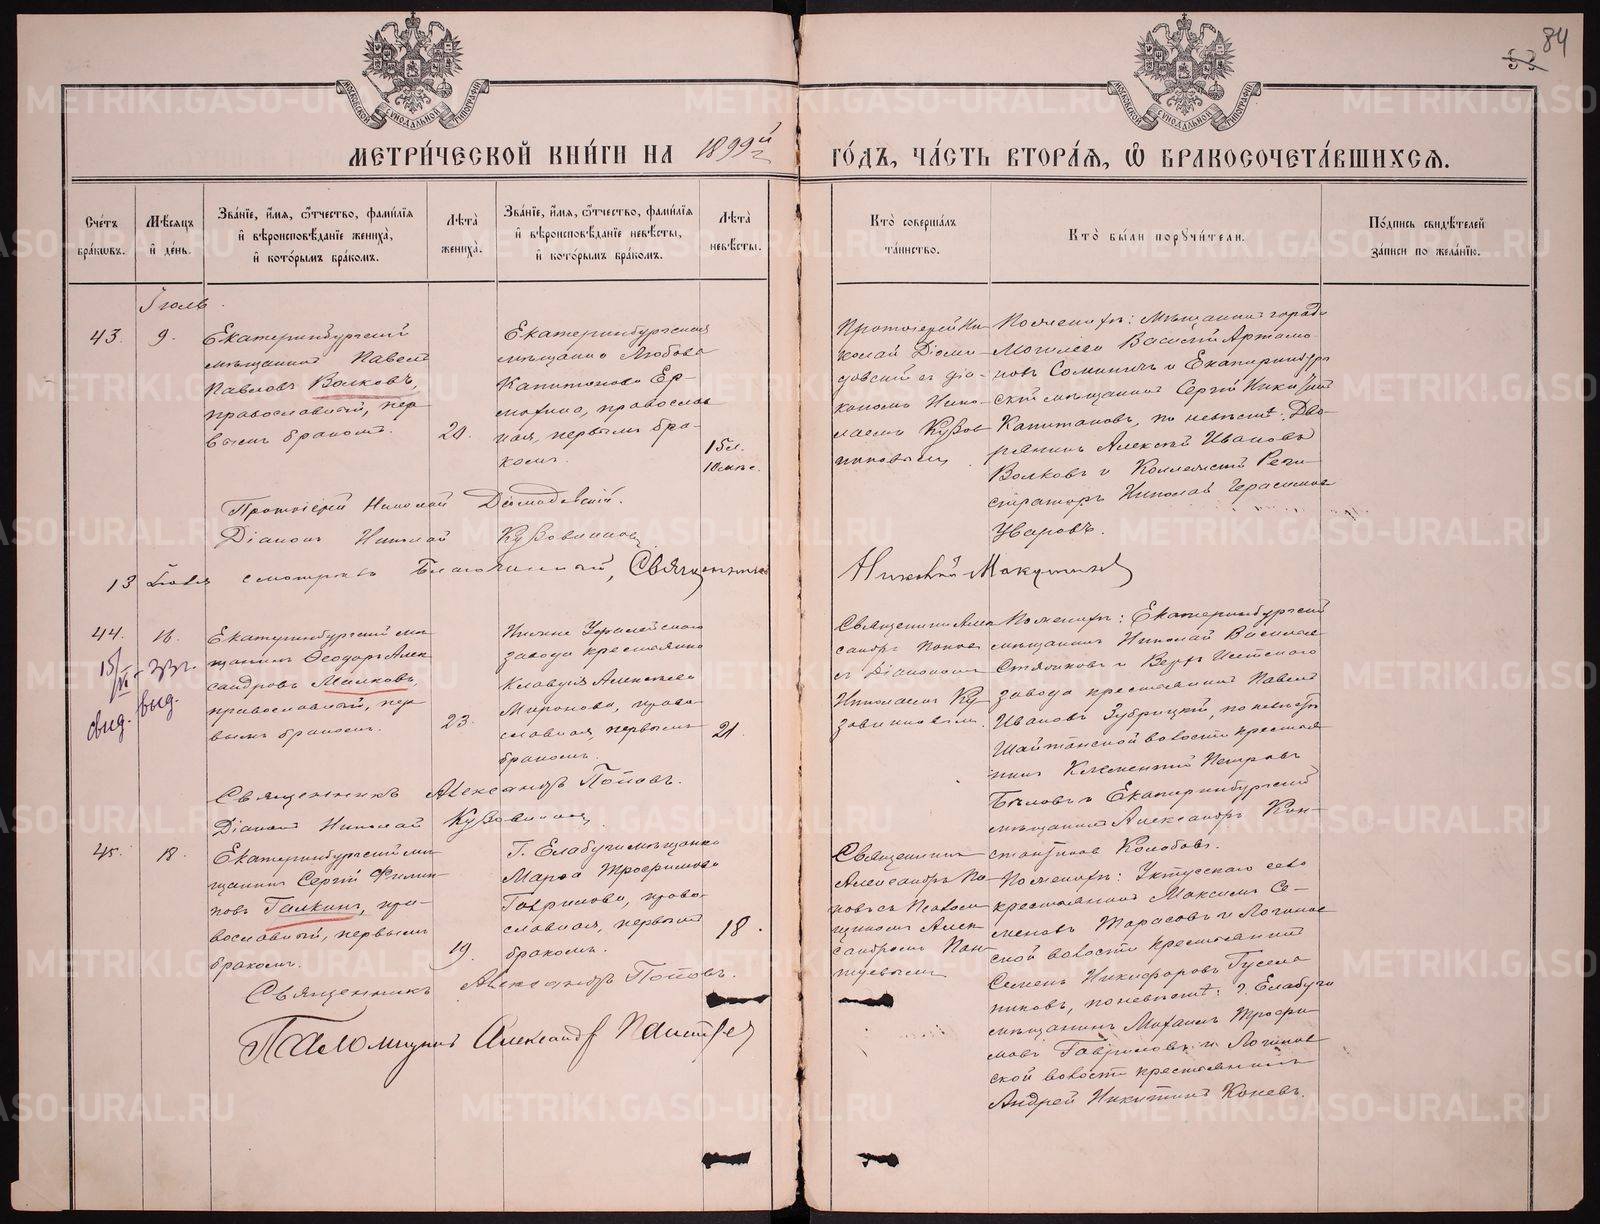 84
53
МОСКОВСКОЙ СѴНОДАЛЬНОЙ ТИПОГРАФІИ
МОСКОВСКОЙ СѴНОДАЛЬНОЙ ТИПОГРАФІИ
МЕТРИ́ЧЕСКОЙ КНИ́ГИ НА 1899й г.
ГО́ДЪ, ЧА́СТЬ ВТОРА́Я, Ѽ БРАКОСОЧЕТА́ВШИХСЯ.
Сче́тъ бра́кѡвъ.
Мѣ́сяцъ и҆ де́нь.
Зва́нїе, и҆́мя, ѻ҆́тчество, фамилїя и҆ вѣроисповѣ́данїе жениха̀, и҆ кото́рымъ бра́комъ.
Лѣта̀ жениха̀.
Зва́нїе, и҆́мя, ѻ҆́тчество, фами́лїя и҆ вѣроисповѣ́данїе невѣ́сты, и҆ кото́рымъ бра́комъ.
Лѣта̀ невѣ́сты.
Кто̀ совершалъ таинство.
Кто̀ бы́ли порꙋчи́тели.
По́дпись свидѣ́телей за́писи по жела́нїю.
Іюль.
43. 9.
Екатеринбургскій
мѣщанинъ Павелъ
Павловъ Волковъ,
православный, пер-
вымъ бракомъ.
21.
Екатеринбургская
мѣщанка Любовь
Капитонова Ер-
мохина, православ
ная, первымъ бра-
комъ.
15 л.
10 мѣс.
Протоіерей Ни-
колай Діоми-
довскій съ діа-
кономъ Нико-
лаемъ Кузов
никовымъ
По женихѣ: Мѣщанинъ города
Могилева Василій Артамо
новъ Соминичъ и Екатеринбург
скій мѣщанинъ Сергій Никитинъ
Капитановъ, по невѣстѣ: Дво-
рянинъ Алексѣй Ивановъ
Волковъ и Коллежскій Реги-
страторъ Николай Герасимов
Уваровъ.
Протоіерей Николай Діомидовскій.
Діаконъ Николай Кузовниковъ
13 Іюля смотрѣлъ Благочинный, Священникъ
Николай Макушинъ
44. 16.
15/VI - 33 г.
выд. выд.
Екатеринбургскій мѣ-
щанинъ Ѳеодоръ Алек
сандровъ Малковъ,
православный, пер
вымъ бракомъ.
23.
завода крестьянка
Клавдія Алексѣева
Миронова, право-
славная, первымъ
бракомъ.
21.
Священникъ Алек
сандръ Поповъ
съ Діакономъ
Николаемъ Ку
зовниковымъ.
По женихѣ: Екатеринбургскій
мѣщанинъ Николай Васильев
Стяжковъ и Верхъ Исетскаго
завода крестьянинъ Павелъ
Ивановъ Зубрицкій, по невѣстѣ
Шайтанской волости крестья
нинъ Климентій Петровъ
Бѣловъ и Екатеринбургскій
мѣщанинъ Александръ Кон-
стантинов Колобовъ.
Священникъ Александръ Поповъ.
Діаконъ Николай Кузовниковъ.
45. 18.
Екатеринбургскій мѣ-
щанинъ Сергій Филип
повъ Галкинъ, пра-
вославный, первымъ
бракомъ.
19.
Г. Елабуги мѣщанка
Марѳа Трофимова
Гаврилова, право-
славная, первымъ
бракомъ.
18.
Священникъ
Александръ По-
повъ съ Псалом
щикомъ Алек-
сандромъ Пан-
туевымъ
По женихѣ: Уктусскаго села
крестьянинъ Максимъ Се-
меновъ Тарасовъ и Логинов
ской волости крестьянинъ
Семенъ Никифоровъ Гусель
никовъ, по невѣстѣ: г. Елабуги
мѣщанинъ Михаилъ Трофи-
мовъ Гавриловъ и Логинов
ской волости крестьянинъ
Андрей Никитинъ Коневъ.
Священникъ Александръ Поповъ.
Псаломщикъ Александръ Пантуев
METRIKI.GASO-URAL.RU